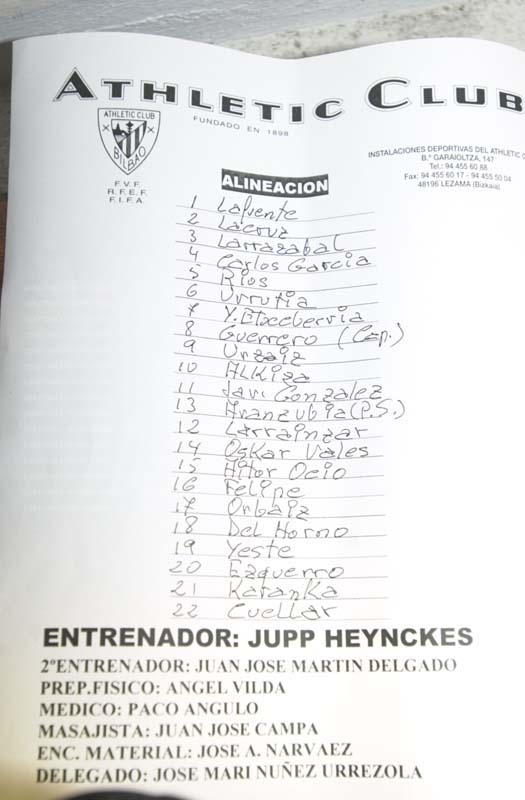 ATHLETIC CLUB
FUNDADO EN 1898
ATHLETIC CLUB
BILBAO
F.V.F.
R.F.E.F.
F.I.F.A.
INSTALACIONES DEPORTIVAS DEL ATHLETIC
B.º GARAIOLTZA, 147
Tel.: 94 455 60 88
Fax: 94 455 60 17 - 94 455 50 04
48196 LEZAMA (Bizkaia)
ALINEACION
1 Lafuente
2 Lacruz
3 Larrazabal
4 Carlos Garcia
5 Rios
6 Urrutia
7 Y. Etxeberria
8 Guerrero (Cap.)
9 Urzaiz
10 Alkiza
11 Javi Gonzalez
13 Aranzubia (P.S.)
12 Larrainzar
14 Oskar Vales
15 Aitor Ocio
16 Felipe
17 Orbaiz
18 Del Horno
19 Yeste
20 Ezquerro
21 Karanka
22 Cuellar
ENTRENADOR: JUPP HEYNCKES
2ºENTRENADOR: JUAN JOSE MARTIN DELGADO
PREP.FISICO: ANGEL VILDA
MEDICO: PACO ANGULO
MASAJISTA: JUAN JOSE CAMPA
ENC. MATERIAL: JOSE A. NARVAEZ
DELEGADO: JOSE MARI NUÑEZ URREZOLA